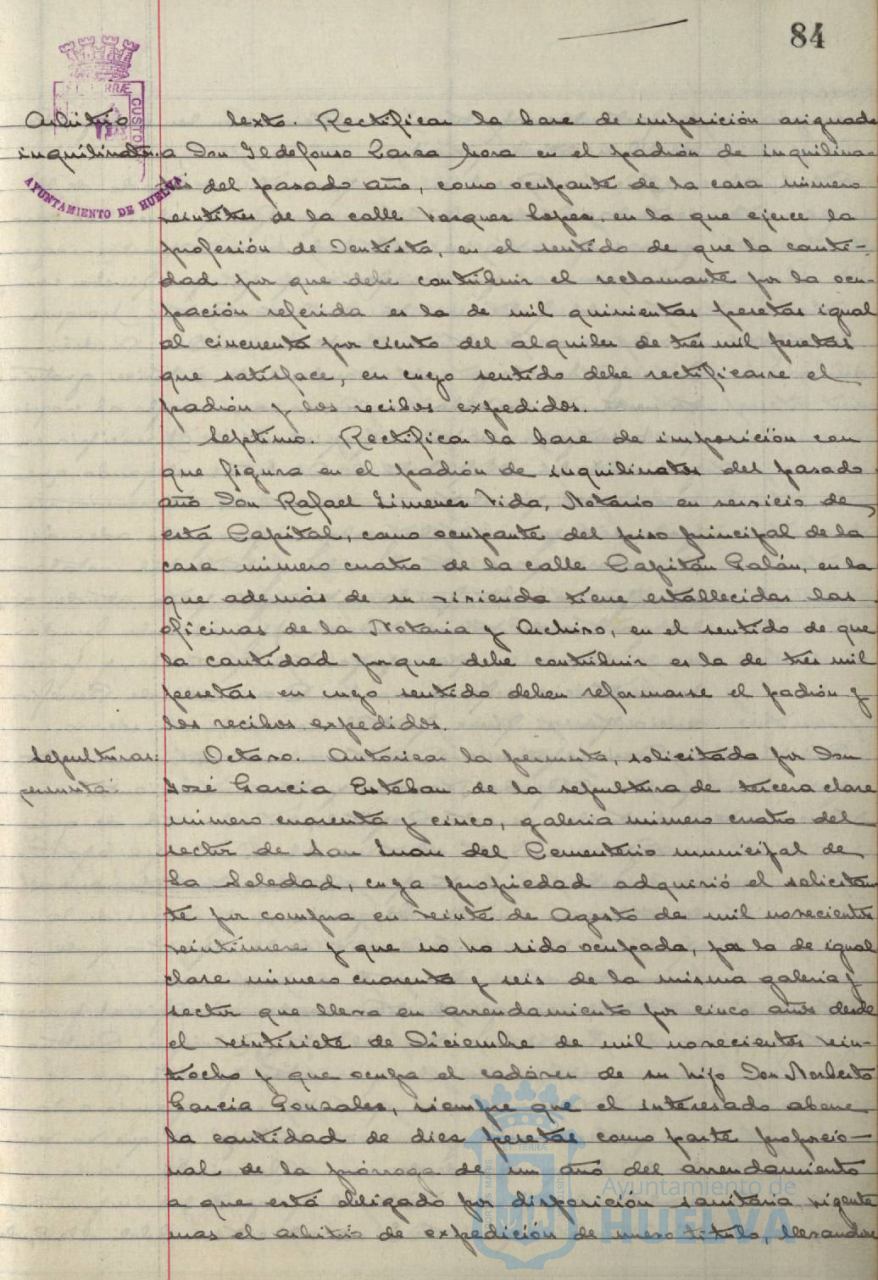 84
Arbitrio
inquilinatos.
AYUNTAMIENTO DE HUELVA
Sexto. Rectificar la base de imposición asignada
a Don Ildefonso Larra Mora en el padrón de inquilina-
tos del pasado año, como ocupante de la casa número
veintitres de la calle Vazquez Lopez, en la que ejerce la
profesión de Dentista, en el sentido de que la canti-
dad por que debe contribuir el reclamante por la ocu-
pación referida es la de mil quinientas pesetas igual
al cincuenta por ciento del alquiler de tres mil pesetas
que satisface, en cuyo sentido debe rectificarse el
padrón y los recibos expedidos.
Septimo. Rectificar la base de imposición con
que figura en el padrón de inquilinatos del pasado
año Don Rafael Gimenez Vida, Notario en servicio de
esta Capital, como ocupante del piso principal de la
casa número cuatro de la calle Capitán Galán, en la
que además de su vivienda tiene establecidas las
oficinas de la Notaria y Archivo, en el sentido de que
la cantidad porque debe contribuir es la de tres mil
pesetas en cuyo sentido deben reformarse el padrón y
los recibos expedidos.
Sepulturas:
permuta.
Octavo. Autorizar la permuta, solicitada por Don
José García Esteban de la sepultura de tercera clase
número cuarenta y cinco, galeria número cuatro del
sector de San Juan del Cementerio municipal de
La Soledad, cuya propiedad adquirió el solicitan
te por compra en veinte de Agosto de mil novecientos
veintinueve y que no ha sido ocupada, por la de igual
clase número cuarenta y seis de la misma galeria y
sector que lleva en arrendamiento por cinco años desde
el veintisiete de Diciembre de mil novecientos vein-
tiocho y que ocupa el cadáver de su hijo Don Norberto
García Gonzalez, siempre que el interesado abone
la cantidad de diez pesetas como parte proporcio-
nal de la prórroga de un año del arrendamiento
a que está obligado por disposición sanitaria vigente
mas el arbitrio de expedición de nuevo título, llevandose
Ayuntamiento de
HUELVA